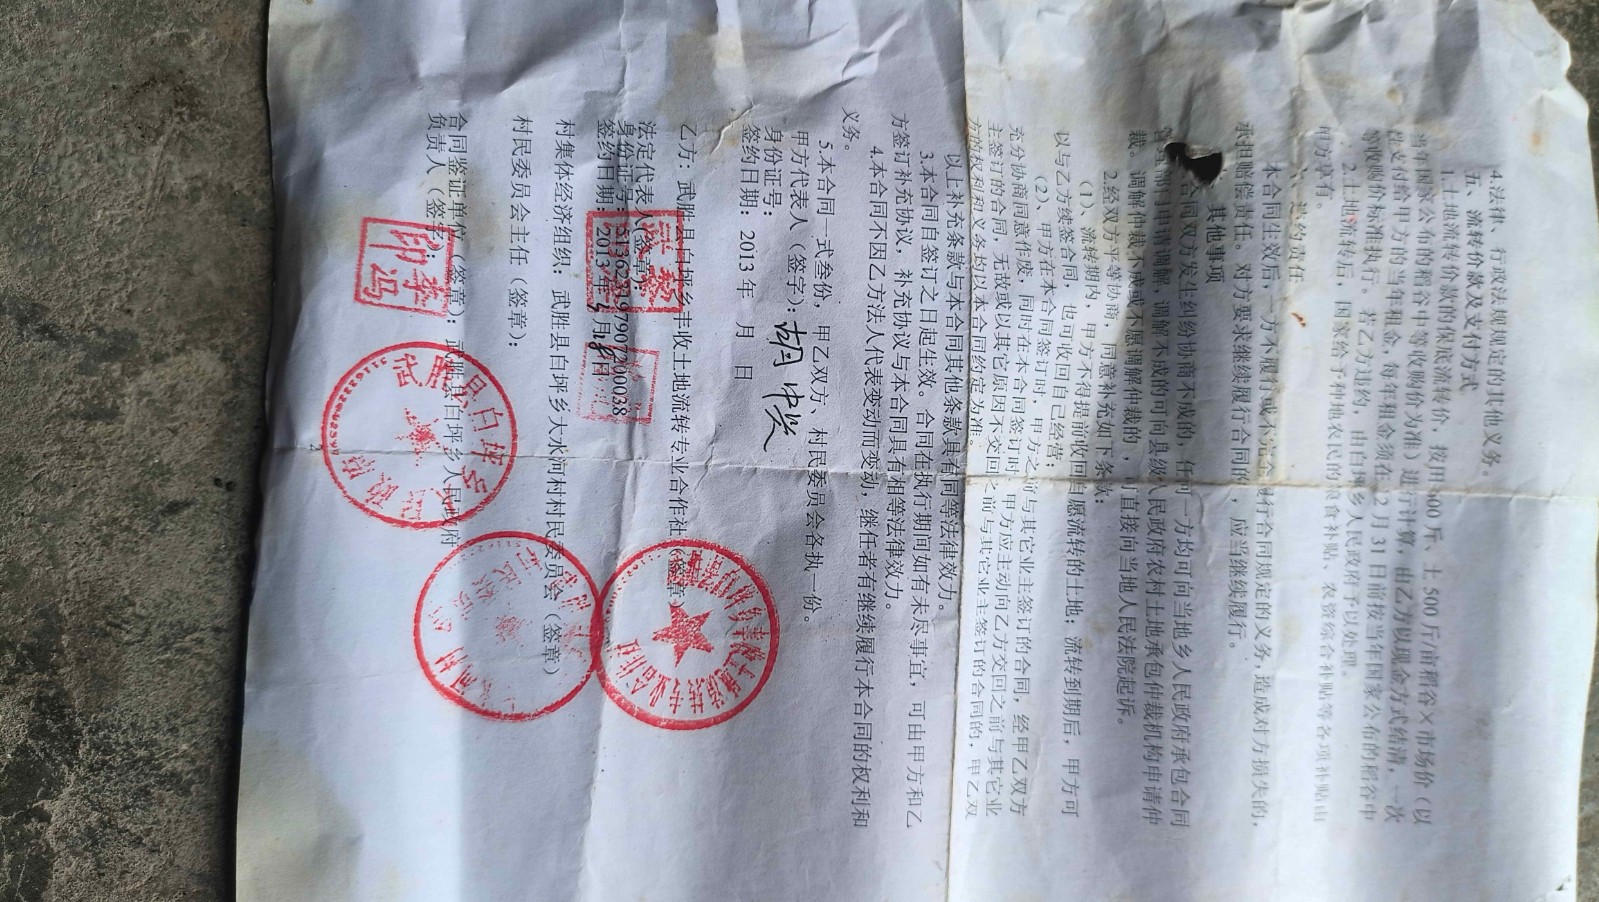 4.法律、行政法规规定的其他义务。
五、流转价款及支付方式
1.土地流转价款的保底流转价，按田600斤、土500斤/亩稻谷×市场价（以
当年国家公布的稻谷中等收购价为准）进行计算，由乙方以现金方式结清，一次
性支付给甲方的当年租金，每年租金须在12月31日前按当年国家公布的稻谷中
等收购价标准执行。若乙方违约，由白坪乡人民政府予以处理。
2.土地流转后，国家给予种地农民的粮食补贴、农资综合补贴等各项补贴由
甲方享有。
违约责任
本合同生效后，一方不履行或不完全履行合同规定的义务，造成对方损失的，
承担赔偿责任。对方要求继续履行合同的，应当继续履行。
其他事项
合同双方发生纠纷协商不成的，任何一方均可向当地乡人民政府承包合同
管理部门申请调解，调解不成的可向县级人民政府农村土地承包仲裁机构申请仲
裁。调解仲裁不成或不愿调解仲裁的，可直接向当地人民法院起诉。
2.经双方平等协商，同意补充如下条款：
（1）、流转期内，甲方不得提前收回自愿流转的土地；流转到期后，甲方可
以与乙方续签合同，也可收回自己经营；
（2）、甲方在本合同签订时，甲方之前与其它业主签订的合同，经甲乙双方
充分协商同意作废，同时在本合同签订时，甲方应主动向乙方交回之前与其它业
主签订的合同，无故或以其它原因不交回之前与其它业主签订的合同的，甲乙双
方的权利和义务均以本合同约定为准。
以上补充条款与本合同其他条款具有同等法律效力。
3.本合同自签订之日起生效。合同在执行期间如有未尽事宜，可由甲方和乙
方签订补充协议，补充协议与本合同具有相等法律效力。
4.本合同不因乙方法人代表变动而变动，继任者有继续履行本合同的权利和
义务。
5.本合同一式叁份，甲乙双方、村民委员会各执一份。
甲方代表人（签字）：胡中
身份证号：
签约日期：2013年 月 日
乙方：武胜县白坪乡丰收土地流转专业合作社（签章）
法定代表人（签章）：
身份证号：513623197907200038
签约日期：2013年 月 日
村集体经济组织：武胜县白坪乡大水河村村民委员会（签章）
村民委员会主任（签章）：
合同鉴证单位（签章）：武胜县白坪乡人民政府
负责人（签字）：
李冯
印
2